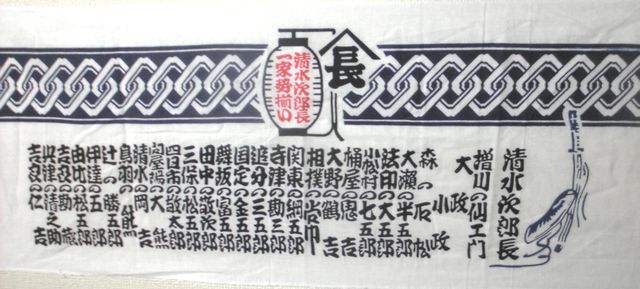 清水次郎長
一家勢揃い
長
清水次郎長
増川の仙エ門
大政
小政
森の石松
大瀬の半五郎
法印の大五郎
小松村の七五郎
桶屋の鬼吉
大野の鶴吉
相撲
関東綱五郎
寺津の勘三郎
追分の三五郎
国定の金五郎
舞坂の富五郎
田中の敬次郎
三保の松五郎
四日市の敬太郎
問屋場の大熊
清水の岡吉
鳥羽の熊
辻の勝五郎
伊達の五郎
由比の松五郎
吉良の勘蔵
興津の清之助
吉良の仁吉